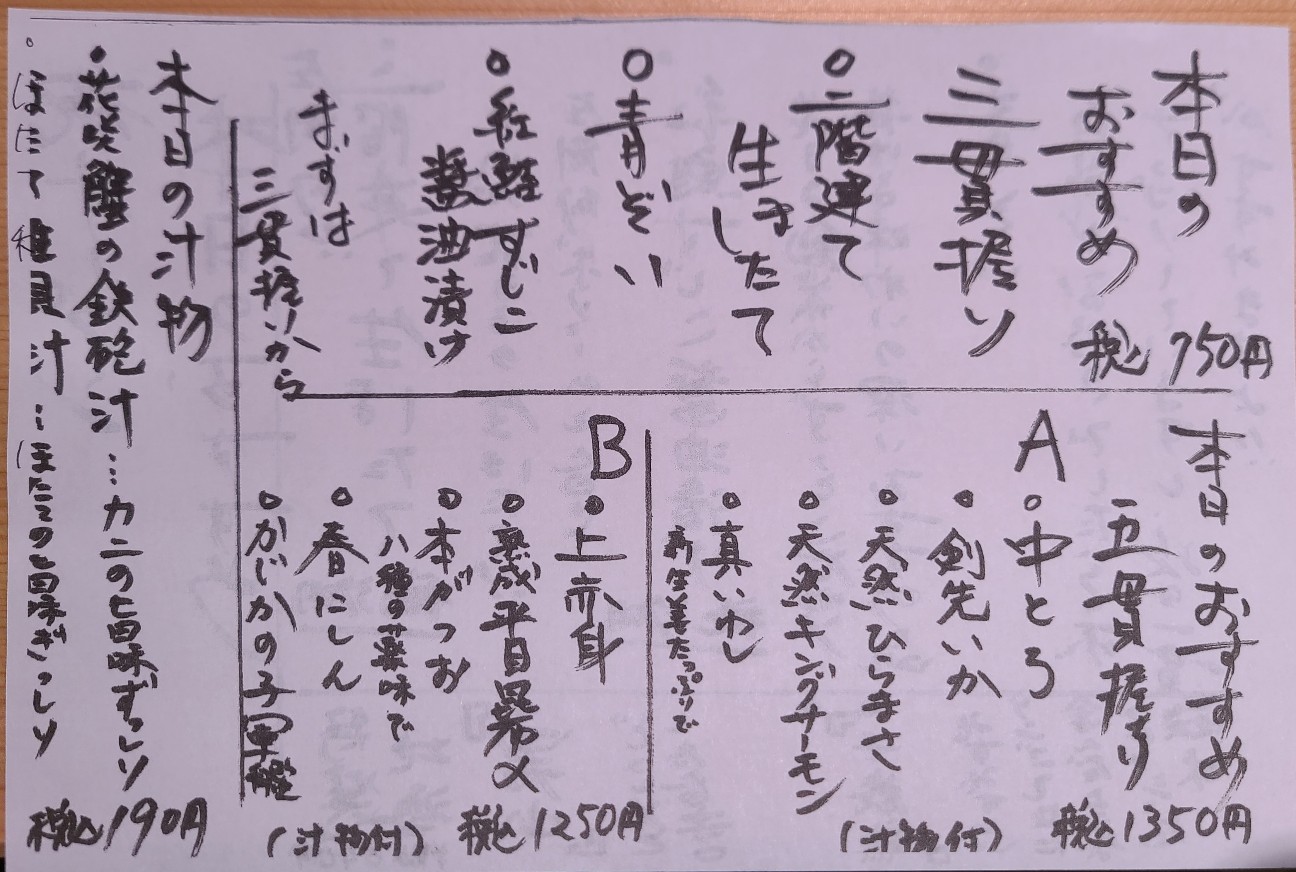 本日の
おすすめ
三貫握り
税込 750円
○二階建て
生ましたて
○青ぞい
○紅鮭すじこ
醤油漬け
まずは
三貫握りから
本日のおすすめ
五貫握り
税込 1350円
A
○中とろ
○剣先いか
○天然ひらまさ
○天然キングサーモン
○真いわし
新生姜たっぷりで
(汁物付)
B
○上赤身
○熟成平目昆布〆
○本がつお
八種の薬味で
○春にしん
○かじかの子軍艦
税込 1250円
(汁物付)
本日の汁物
○花咲蟹の鉄砲汁…カニの旨味ずっしり
○ほたて稚貝汁…ほたての旨味ぎっしり
税込 190円